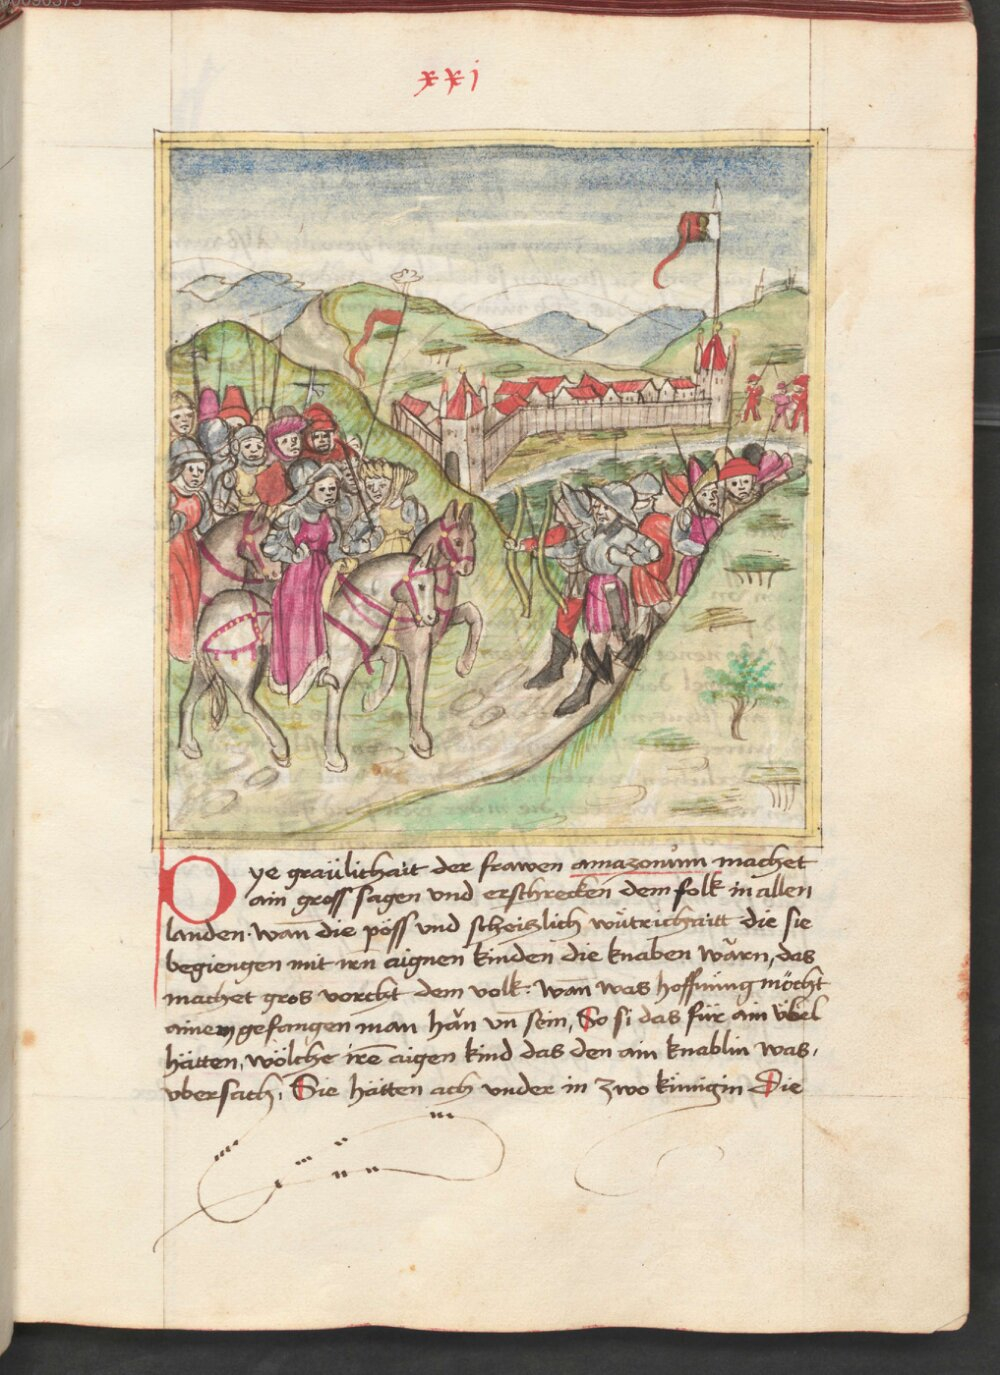 xxj
Dye graülichait der frawen amazonum machet
ain gross sagen und erschrecken dem folk in allen
landen. wan die pöss vnd scheislich wütrichaitt die sie
begiengen mit irn aignen kinden die knaben wärn, das
machet gros vorcht dem volk: wan was hoffnung möcht
ainem gefangen man hän vn̄ sein, So si das für ain übel
hätten, wölche irē aigen kind das den ain knablin was,
vbersach, Sie hätten ach vnder in zwo künigin Die